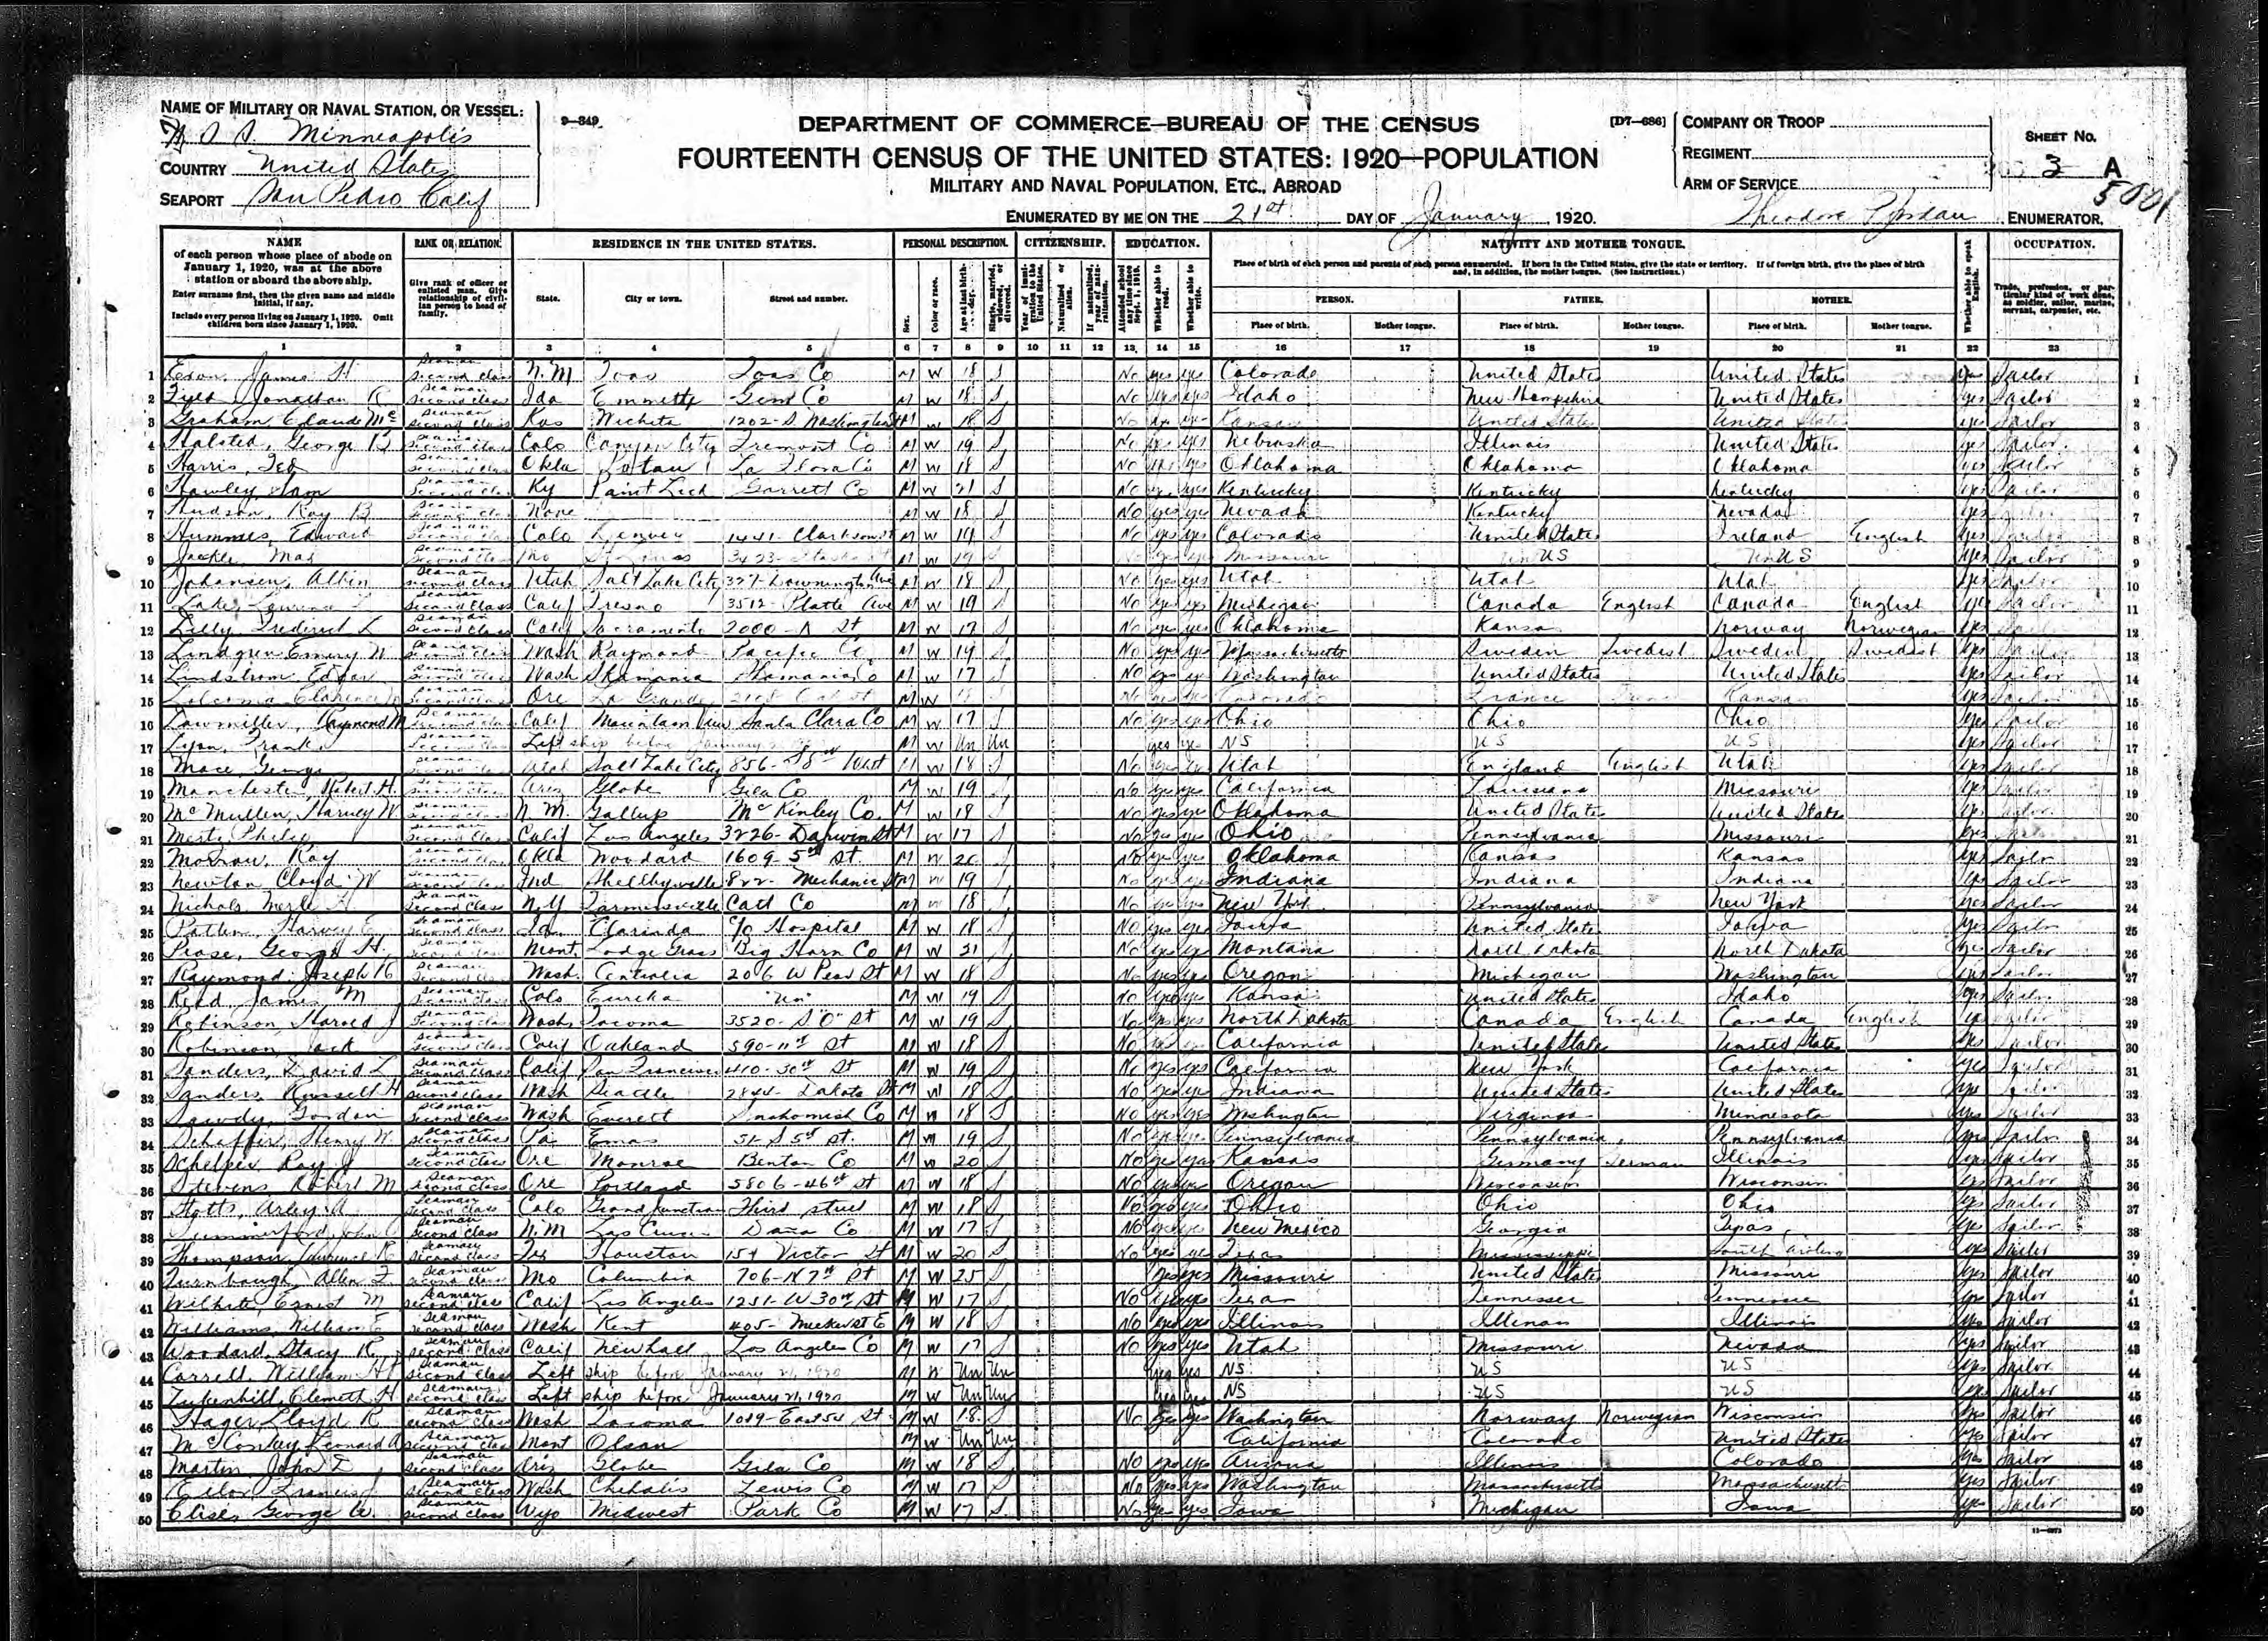 NAME OF MILITARY OR NAVAL STATION, OR VESSEL:
Minneapolis
COUNTRY United States
SEAPORT San Pedro Calif
9-849
DEPARTMENT OF COMMERCE—BUREAU OF THE CENSUS
FOURTEENTH CENSUS OF THE UNITED STATES: 1920—POPULATION
MILITARY AND NAVAL POPULATION, ETC., ABROAD
ENUMERATED BY ME ON THE 21st DAY OF January 1920.
[D7—686]
COMPANY OR TROOP
REGIMENT
ARM OF SERVICE
SHEET No.
3 A
5001
Theodore P Jordan ENUMERATOR.
NAME
of each person whose place of abode on January 1, 1920, was at the above station or aboard the above ship.
Enter surname first, then the given name and middle initial, if any.
Include every person living on January 1, 1920. Omit children born since January 1, 1920.
RANK OR RELATION.
Give rank of officer or enlisted man. Give relationship of civilian person to head of family.
RESIDENCE IN THE UNITED STATES.
State. City or town. Street and number.
PERSONAL DESCRIPTION.
Sex. Color or race. Age at last birthday. Single, married, widowed, or divorced.
CITIZENSHIP.
Year of immigration to the United States. Naturalized or alien. If naturalized, year of naturalization.
EDUCATION.
Attended school any time since Sept. 1, 1919. Whether able to read. Whether able to write.
NATIVITY AND MOTHER TONGUE.
Place of birth of each person and parents of each person enumerated. If born in the United States, give the state or territory. If of foreign birth, give the place of birth and, in addition, the mother tongue. (See instructions.)
PERSON. FATHER. MOTHER.
Place of birth. Mother tongue. Place of birth. Mother tongue. Place of birth. Mother tongue.
Whether able to speak English.
OCCUPATION.
Trade, profession, or particular kind of work done, as soldier, sailor, marine, servant, carpenter, etc.
1 2 3 4 5 6 7 8 9 10 11 12 13 14 15 16 17 18 19 20 21 22 23
1 James H Seaman second class N.M Taos Taos Co M W 18 S No yes yes Colorado United States United States yes Sailor 1
2 Jonathan R Seaman second class Ida Emmett Gem Co M W 18 S No yes yes Idaho New Hampshire United States yes Sailor 2
3 Graham, Claude Mc Seaman second class Kas Wichita 1202-S. Washington M W 18 S No Kansas United States United States yes Sailor 3
4 Halsted, George B Seaman second class Colo Canyon City Fremont Co M W 19 S No yes yes Nebraska Illinois United States yes Sailor 4
5 Harris, Ted Seaman second class Okla M W 18 S No yes yes Oklahoma Oklahoma Oklahoma yes Sailor 5
6 Hawley, Sam Seaman second class Ky Paint Lick Garrett Co M W 21 S No yes Kentucky Kentucky Kentucky yes Sailor 6
7 Hudson, Ray B Seaman second class None M W 18 S No yes yes Nevada Kentucky Nevada yes Sailor 7
8 Hummes, Edward Seaman second class Colo Denver 1441- Clarkson st M W 19 S No yes yes Colorado United States Ireland English yes Sailor 8
9 Seaman second class Mo St Louis M W 19 S Missouri Un US Un US yes Sailor 9
10 Johansen, Albin Seaman second class Utah Salt Lake City M W 18 S No yes yes Utah Utah Utah yes Sailor 10
11 Lake, Seaman second class Calif Fresno 3512- Platte Ave M W 19 S No yes yes Michigan Canada English Canada English yes Sailor 11
12 Lilly, Fredirick L Seaman second class Calif Sacramento 2000- St M W 17 S No yes yes Oklahoma Kansas Norway Norwegian yes 12
13 Lindgren Emery W Seaman second class Wash Raymond Pacific Co M W 19 S No yes yes Massachusetts Sweden Swedish Sweden Swedish yes Sailor 13
14 Lindstrom, Edgar Seaman second class Wash Skamania Skamania Co M W 17 S No yes yes Washington United States United States yes Sailor 14
15 Clarence Seaman second class Ore La Grande M W 18 S No Colorado France Kansas yes Sailor 15
16 Raymond M Seaman second class Calif Mountain View Santa Clara Co M W 17 S No yes yes Ohio Ohio Ohio yes Sailor 16
17 Lyon, Frank Seaman second class Left ship before January M W Un Un yes yes NS US US yes Sailor 17
18 Mace, George Seaman second class Utah Salt Lake City 856- West M W 18 S No Utah England English Utah yes Sailor 18
19 Manchester, Robert H. Seaman second class Ariz Globe Gila Co M W 19 S No yes yes California Louisiana Missouri yes Sailor 19
20 McMullen, Harvey W Seaman second class N. M. Gallup McKinley Co. M W 18 S No yes yes Oklahoma United States United States yes Sailor 20
21 Philip Seaman second class Calif Los Angeles 3226- Darwin St M W 17 S No yes yes Ohio Pennsylvania Missouri yes 21
22 Morrow, Ray Seaman second class Okla Woodard 1609- 5th St. M W 20 S No yes yes Oklahoma Kansas Kansas yes Sailor 22
23 Newton Cloyd W Seaman second class Ind Shelbyville 822- Mechanic St M W 19 S No yes yes Indiana Indiana Indiana yes Sailor 23
24 Nichols, Merle Seaman second class N.Y Farmersville Catt Co M W 18 S No yes yes New York Pennsylvania New York yes Sailor 24
25 Harvey E Seaman second class Ia. Clarinda c/o Hospital M W 18 S No yes yes Iowa United States Iowa yes Sailor 25
26 Pease, George H. Seaman second class Mont. Lodge Grass Big Horn Co M W 21 S No yes yes Montana North Dakota North Dakota yes Sailor 26
27 Raymond, Joseph R Seaman second class Wash. Centralia 206 W Pear St M W 18 S No yes yes Oregon Michigan Washington yes Sailor 27
28 Read, James M Seaman second class Colo Eureka "Un" M W 19 S No yes yes Kansas United States Idaho yes Sailor 28
29 Robinson, Harold J Seaman second class Wash. Tacoma 3520- S "O" St M W 19 S No yes yes North Dakota Canada English Canada English yes Sailor 29
30 Robinson, Jack Seaman second class Calif Oakland 590-11th St M W 18 S No yes California United States United States yes Sailor 30
31 Sanders, David L Seaman second class Calif San Francisco 410- 30th St M W 19 S No yes yes California New York California yes Sailor 31
32 Sanders, Russell H Seaman second class Wash Seattle 2844- Dakota St M W 18 S No yes yes Indiana United States United States yes Sailor 32
33 Sawdy, Gordon Seaman second class Wash Everett Snohomish Co M W 18 S No yes yes Washington Virginia Minnesota yes Sailor 33
34 Schaffer, Henry W. Seaman second class Pa Emaus S 5th St. M W 19 S No yes yes Pennsylvania Pennsylvania Pennsylvania yes Sailor 34
35 Ray J Seaman second class Ore Monroe Benton Co M W 20 S No yes yes Kansas Germany German Illinois yes Sailor 35
36 Stevens Robert M Seaman second class Ore Portland 5806-46th St M W 18 S No yes yes Oregon Wisconsin Wisconsin yes Sailor 36
37 Stotts, Arley A Seaman second class Colo Grand Junction Third street M W 18 S No yes yes Ohio Ohio Ohio yes Sailor 37
38 Summerford, John Seaman second class N.M Las Cruces Dana Co M W 17 S No yes yes New Mexico Georgia Texas yes Sailor 38
39 Thompson, Laurence R Seaman second class Tex Houston Victor St M W 20 S No yes yes Texas Mississippi South Carolina yes Sailor 39
40 Turnbaugh, Allen F. Seaman second class Mo Columbia 706-N 7th St M W 25 S yes yes Missouri United States Missouri yes Sailor 40
41 Wilhite, Ernest M Seaman second class Calif Los Angeles 1251- W 30th St M W 17 S No yes yes Texas Tennessee Tennessee yes Sailor 41
42 Williams, William E Seaman second class Wash Kent M W 18 S No yes yes Illinois Illinois Illinois yes Sailor 42
43 Woodard, Stacy R Seaman second class Calif Newhall Los Angeles Co M W 17 S No yes yes Utah Missouri Nevada yes Sailor 43
44 William H Seaman second class Left ship before January 21, 1920 M W Un Un yes yes NS US US yes Sailor 44
45 Seaman second class Left ship before January 21, 1920 M W Un Un yes yes NS US US yes Sailor 45
46 Hager, Lloyd R Seaman second class Wash Tacoma St. M W 18 S No yes yes Washington Norway Norwegian Wisconsin yes Sailor 46
47 Leonard A Seaman second class Mont Olson M W Un Un California Colorado United States yes Sailor 47
48 Martin, John D Seaman second class Ariz Globe Gila Co M W 18 S No yes yes Arizona Illinois Colorado yes Sailor 48
49 Francis Seaman second class Wash Chehalis Lewis Co M W 17 S No yes yes Washington Massachusetts Massachusetts yes Sailor 49
50 George W. Seaman second class Wyo Midwest Park Co M W 17 S. No yes yes Iowa Michigan Iowa yes Sailor 50